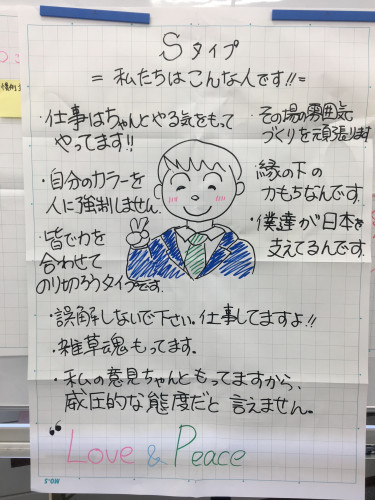 Sタイプ
= 私たちはこんな人です!! =
・仕事はちゃんとやる気をもって
やってます!!
・自分のカラーを
人に強制しません.
・皆で力を
合わせて
のり切ろうタイプです.
・その場の雰囲気
づくりを頑張ります
・縁の下の
力もちなんです.
・僕達が日本を
支えてるんです.
・誤解しないで下さい.仕事してますよ!!
・雑草魂もってます.
・私の意見ちゃんともってますから、
威圧的な態度だと言えません。
“Love & Peace